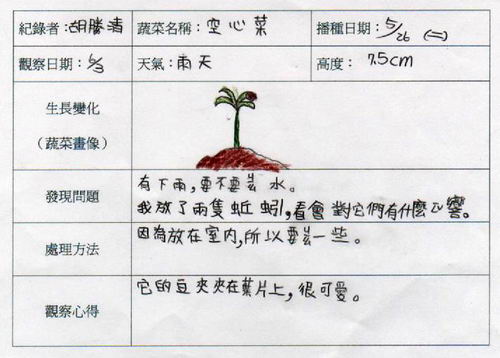 紀錄者：胡勝清 蔬菜名稱：空心菜 播種日期：5/26 (二)
觀察日期：6/3 天氣：雨天 高度：7.5cm
生長變化
（蔬菜畫像）
發現問題 有下雨，要不要ㄐㄧㄠ水。
我放了兩隻蚯蚓，看會對它們有什麼ㄧㄥˇ響。
處理方法 因為放在室內，所以要ㄐㄧㄠ一些。
觀察心得 它的豆夾夾在葉片上，很可愛。